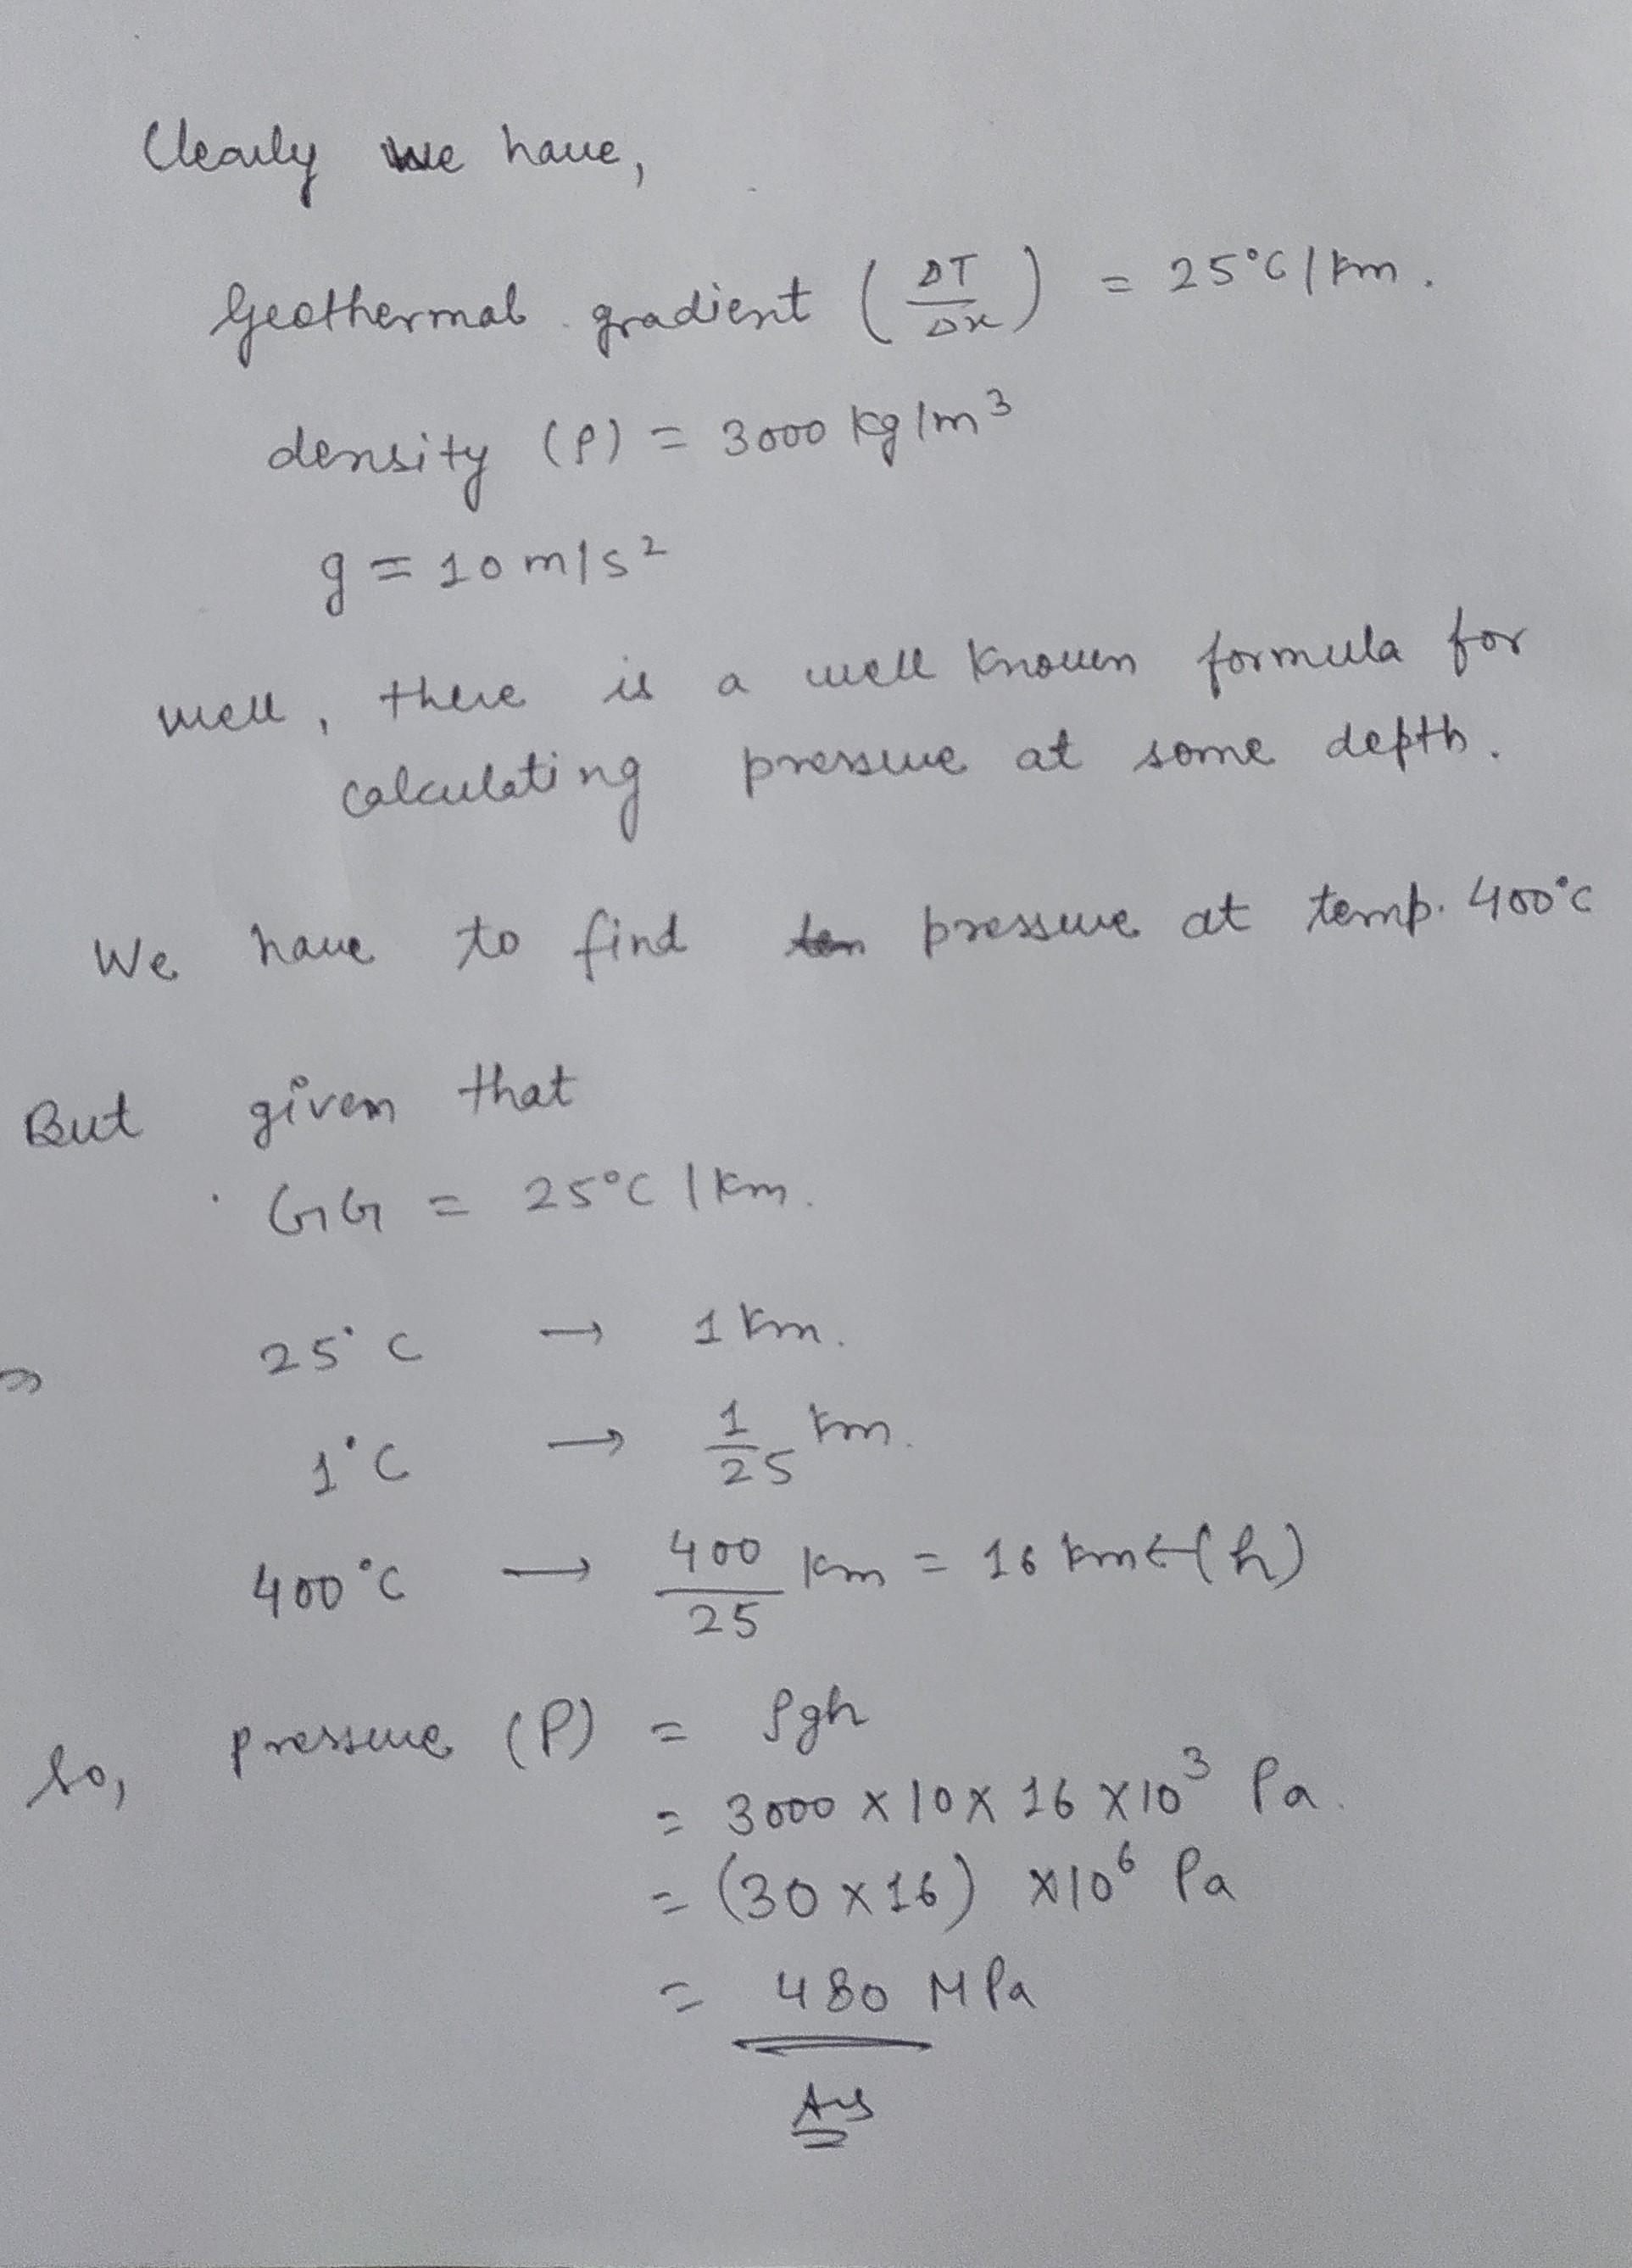 Clearly we have,
Geothermal gradient (ΔT/Δx) = 25°C/km.
density (ρ) = 3000 kg/m³
g = 10 m/s²
well, there is a well known formula for
calculating pressure at some depth.
We have to find pressure at temp. 400°C
But given that
GG = 25°C/km.
⇒ 25°C → 1 km.
1°C → 1/25 km.
400°C → 400/25 km = 16 km ← (h)
So, pressure (P) = ρgh
= 3000 × 10 × 16 × 10³ Pa.
= (30 × 16) × 10⁶ Pa
= 480 MPa
Ans